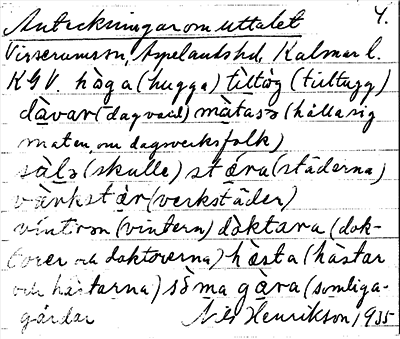 Anteckningar om uttalet 4.
Virserumssn, Aspelands hd, Kalmar l.
KGV. hòga (hugga) tìltòg (tilltugg)
dàvar (dagvard) màtasə (hålla sig
maten, om dagsverksfolk)
sàlə (skulle) stæ̀ra (städerna)
værkstæ̀r (verkstäder)
vintrən (vintern) dòktara (dok-
torer och doktorerna) hæ̀sta (hästar
och hästarna) sòma gæ̀ra (somliga-
gårdar Nils Henrikson, 1935